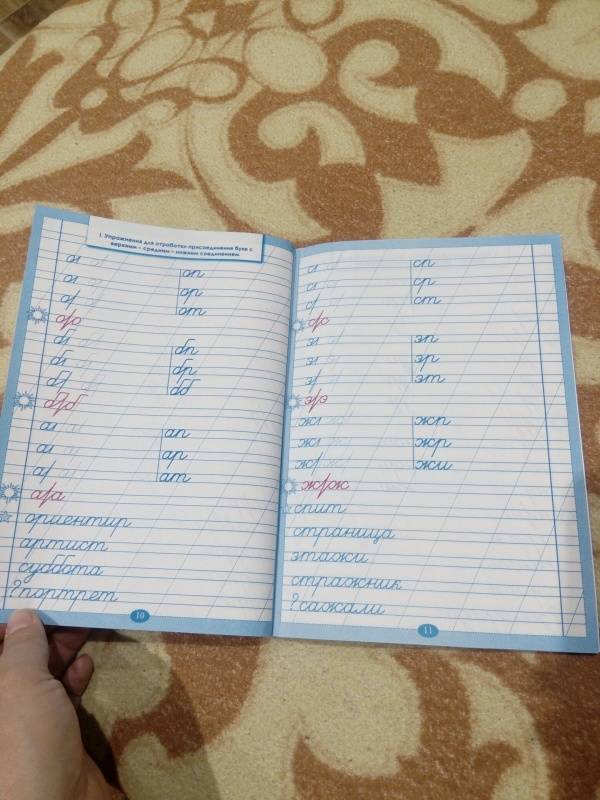 I. Упражнения для отработки присоединения букв с
верхним – средним – нижним соединением
оп
ор
от
о/о
бп
бр
бб
б/б
ап
ар
ат
а/а
ориентир
артист
суббота
? портрет
10
сп
ср
ст
с/с
эп
эр
эт
э/э
жп
жр
жи
ж/ж
спит
страница
этажи
стражник
? сажали
11